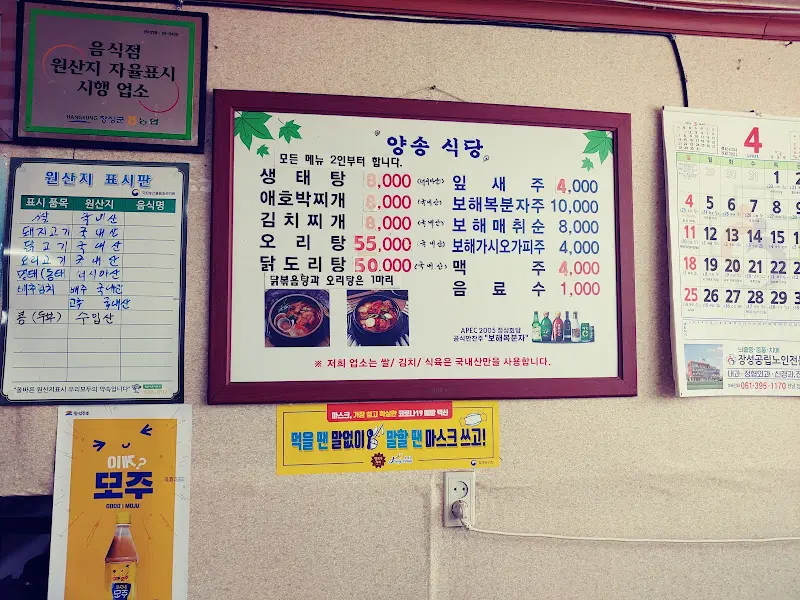 음식점
원산지 자율표시
시행 업소
장성군 농협
원산지 표시판
표시 품목 원산지 음식명
쌀 국내산
돼지고기 국내산
닭고기 국내산
오리고기 국내산
명태(동태 러시아산
배추김치 배추 국내산
고추 국내산
콩 (두부) 수입산
"올바른 원산지표시 우리모두의 약속입니다"
양송 식당
모든 메뉴 2인부터 합니다.
생태탕 8,000
애호박찌개 8,000 (국내산)
김치찌개 8,000 (국내산)
오리탕 55,000 (국내산)
닭도리탕 50,000 (국내산)
닭볶음탕과 오리탕은 1마리
잎새주 4,000
보해복분자주 10,000
보해매취순 8,000
보해가시오가피주 4,000
맥주 4,000
음료수 1,000
APEC 2005 정상회담
공식만찬주 "보해복분자"
※ 저희 업소는 쌀/ 김치/ 식육은 국내산만을 사용합니다.
마스크, 가장 쉽고 확실한 코로나19 예방 백신
먹을 땐 말없이 말할 땐 마스크 쓰고!
이게?
모주
GOOD! MOJU
모주
4
월 화 수 목
1
2
4 5 6 7 8 9
11 12 13 14 15 16
18 19 20 21 22 23
25 26 27 28 29 30
장성공립노인전문
061-395-1170